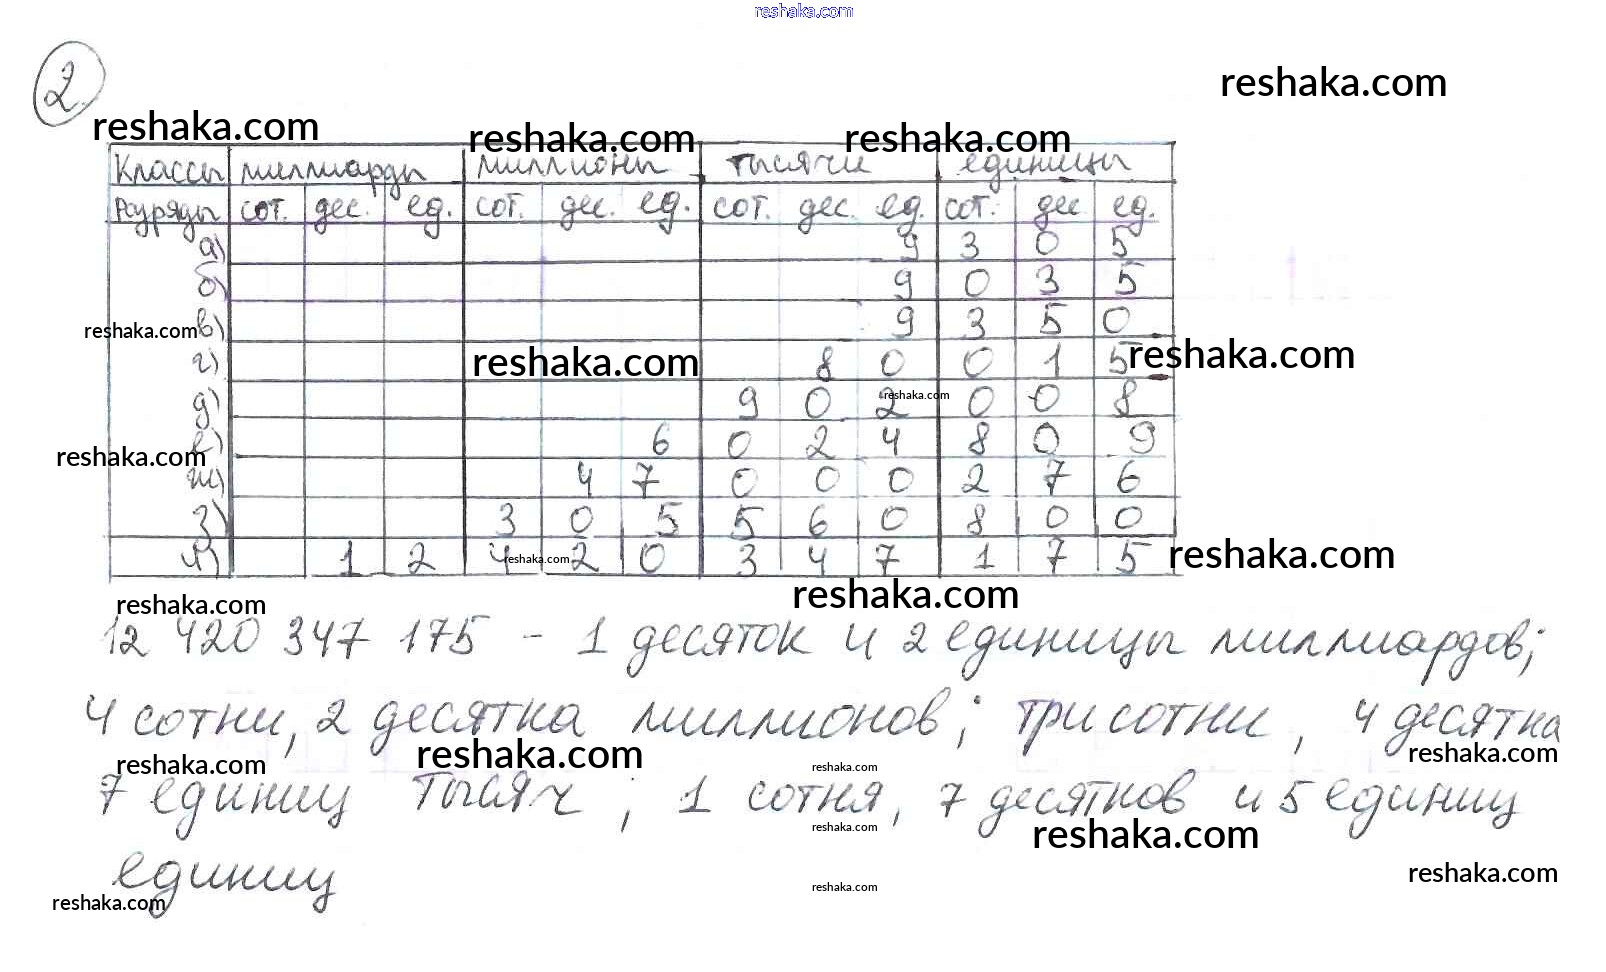 reshaka.com
2
reshaka.com
reshaka.com
reshaka.com
reshaka.com
Классы миллиарды миллионы тысячи единицы
Разряды сот. дес. ед. сот. дес. ед. сот. дес. ед. сот. дес ед.
а) 9 3 0 5
б) 9 0 3 5
reshaka.com в) 9 3 5 0
г) reshaka.com 8 0 0 1 5 reshaka.com
д) 9 0 2 reshaka.com 0 0 8
reshaka.com е) 6 0 2 4 8 0 9
ж) 4 7 0 0 0 2 7 6
з) 3 0 5 5 6 0 8 0 0
и) 1 2 4 reshaka.com 2 0 3 4 7 1 7 5 reshaka.com
reshaka.com reshaka.com
12 420 347 175 - 1 десяток и 2 единицы миллиардов;
4 сотни, 2 десятка миллионов; три сотни, 4 десятка
reshaka.com reshaka.com reshaka.com reshaka.com
7 единиц тысяч; 1 сотня, 7 десятков и 5 единиц
reshaka.com reshaka.com
единиц
reshaka.com reshaka.com reshaka.com